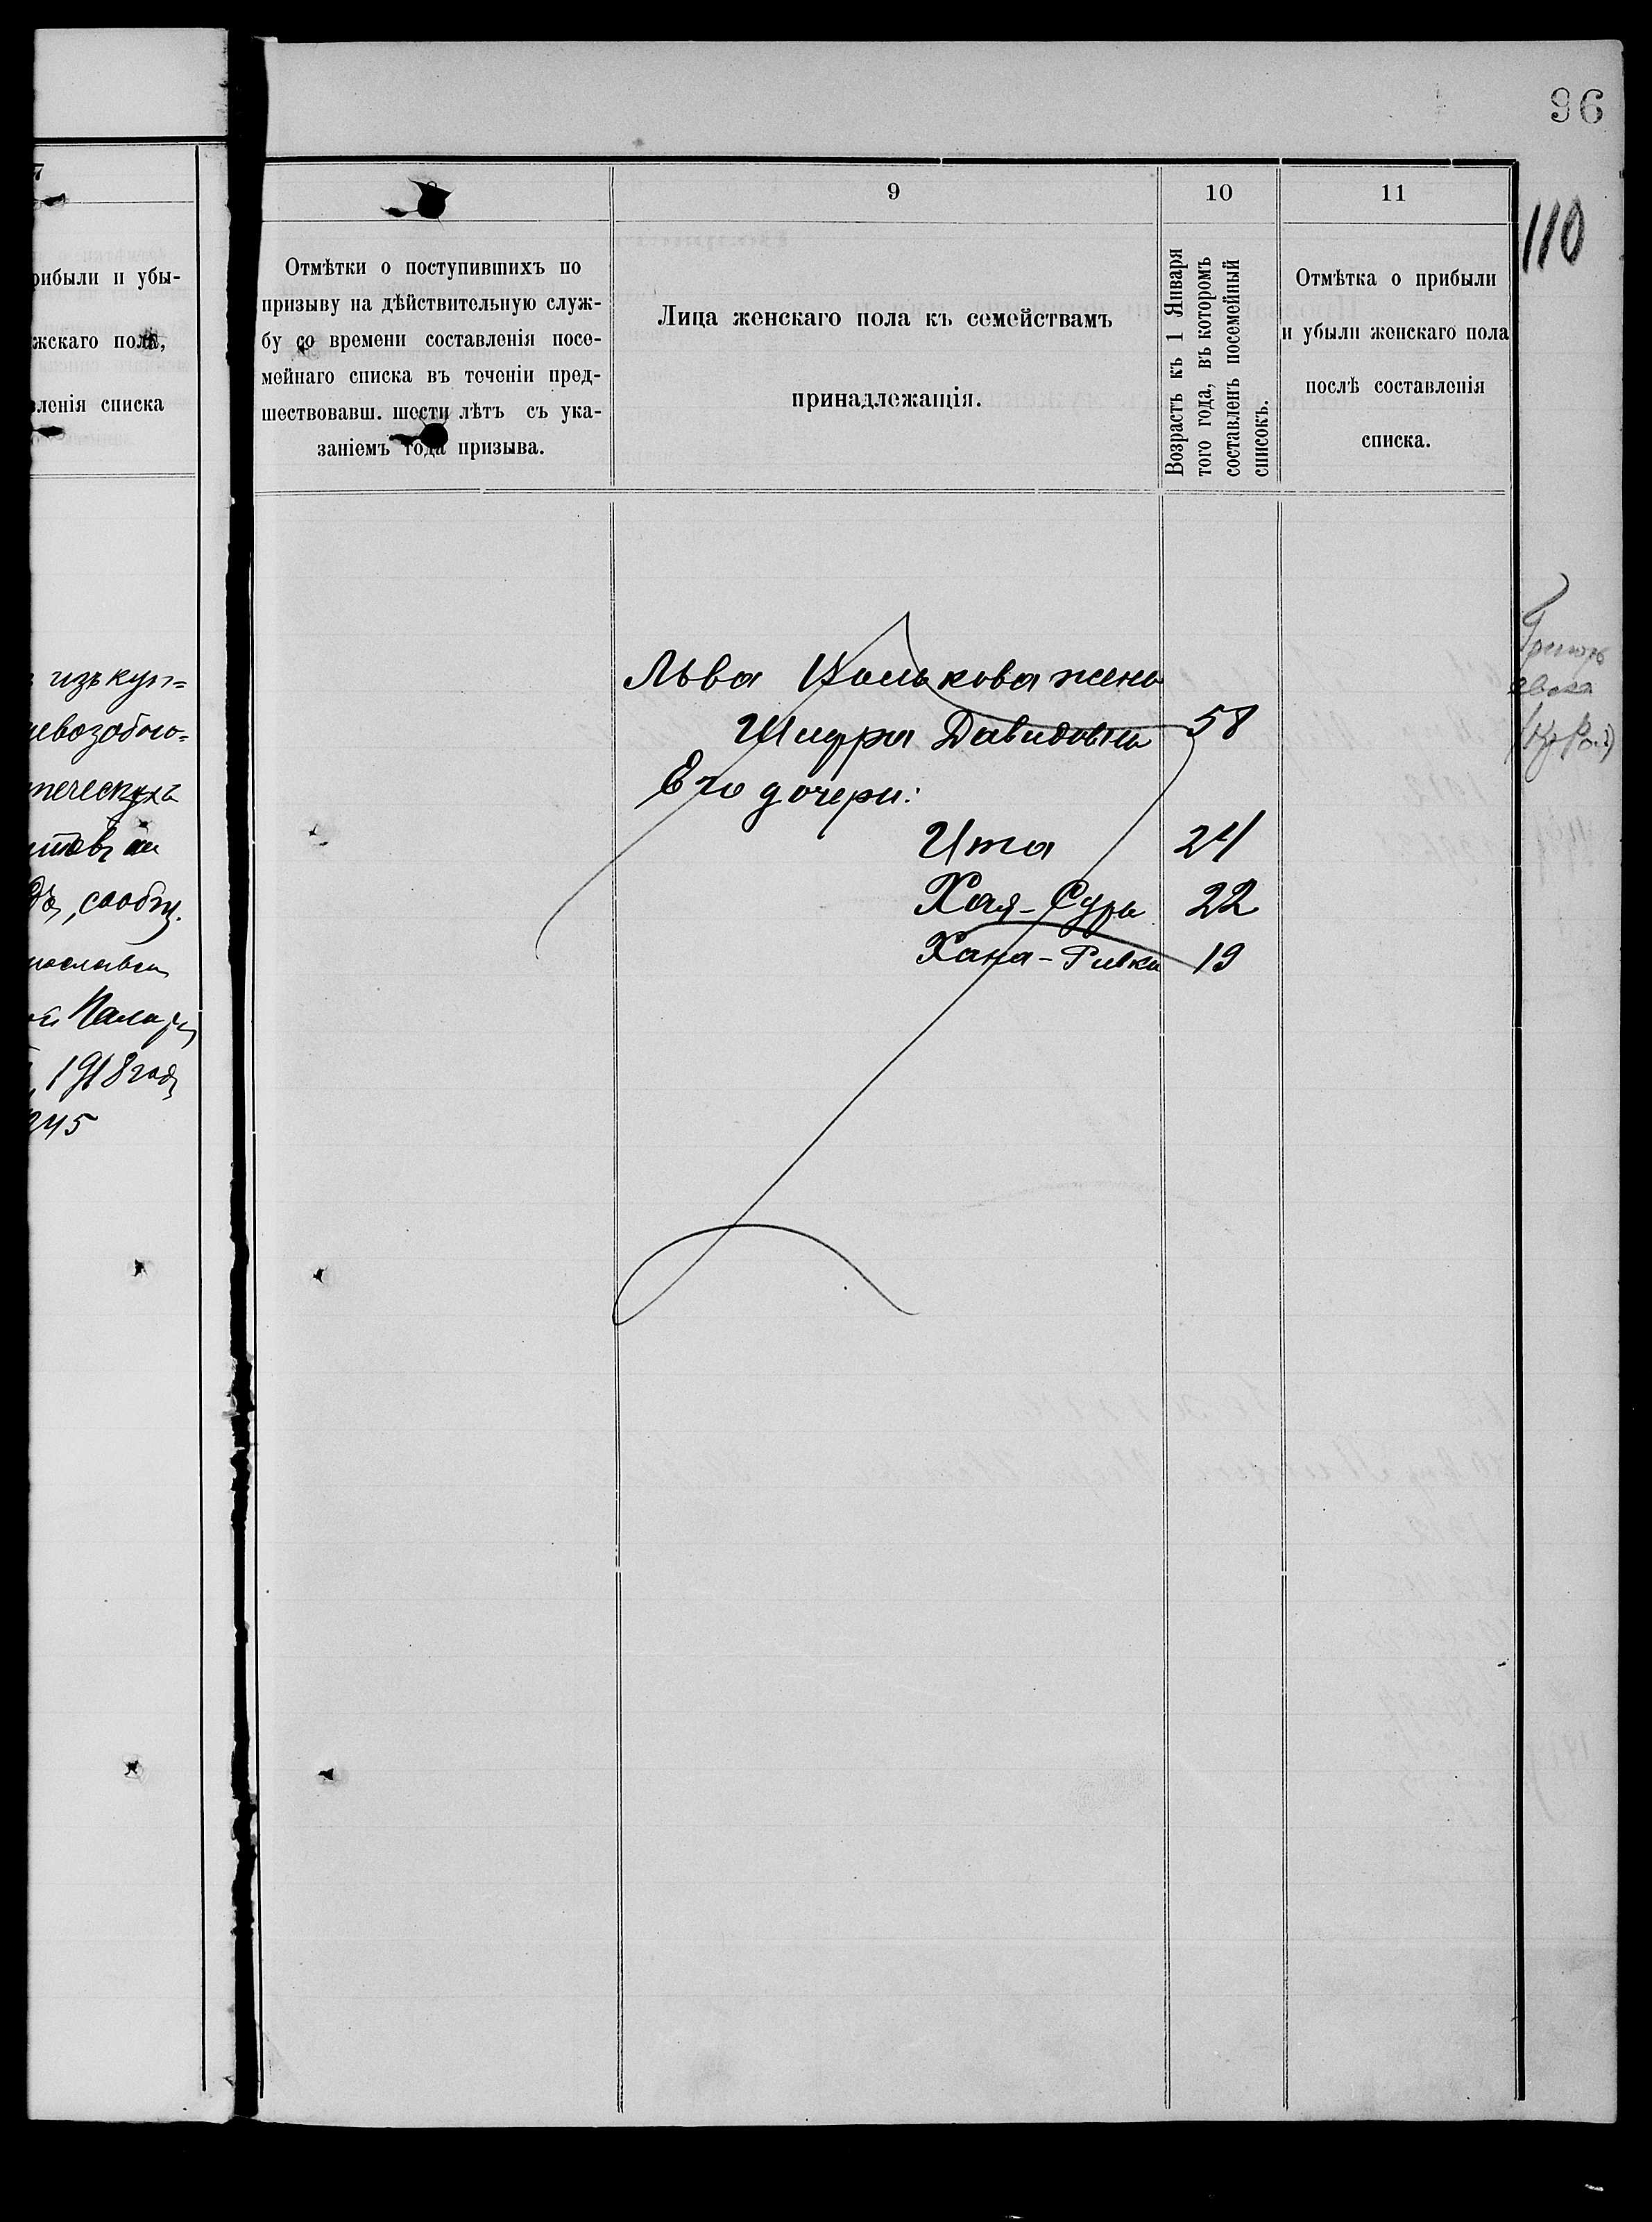 96
110
7
рибыли и убы-
жскаго пола,
вленія списка
изъ куп=
невозобно=
сообщ.
Палаты
1918 года
245
Отмѣтки о поступившихъ по
призыву на дѣйствительную служ-
бу со времени составленія посе-
мейнаго списка въ теченіи пред-
шествовавш. шести лѣтъ съ ука-
заніемъ года призыва.
9
Лица женскаго пола къ семействамъ
принадлежащія.
10
Возрастъ къ 1 Января
того года, въ которомъ
составленъ посемейный
списокъ.
11
Отмѣтка о прибыли
и убыли женскаго пола
послѣ составленія
списка.
Льва Волькова жена
Шифра Давидовна 58
Его дочери:
Ита 24
Хая-Сура 22
Хана-Ривка 19